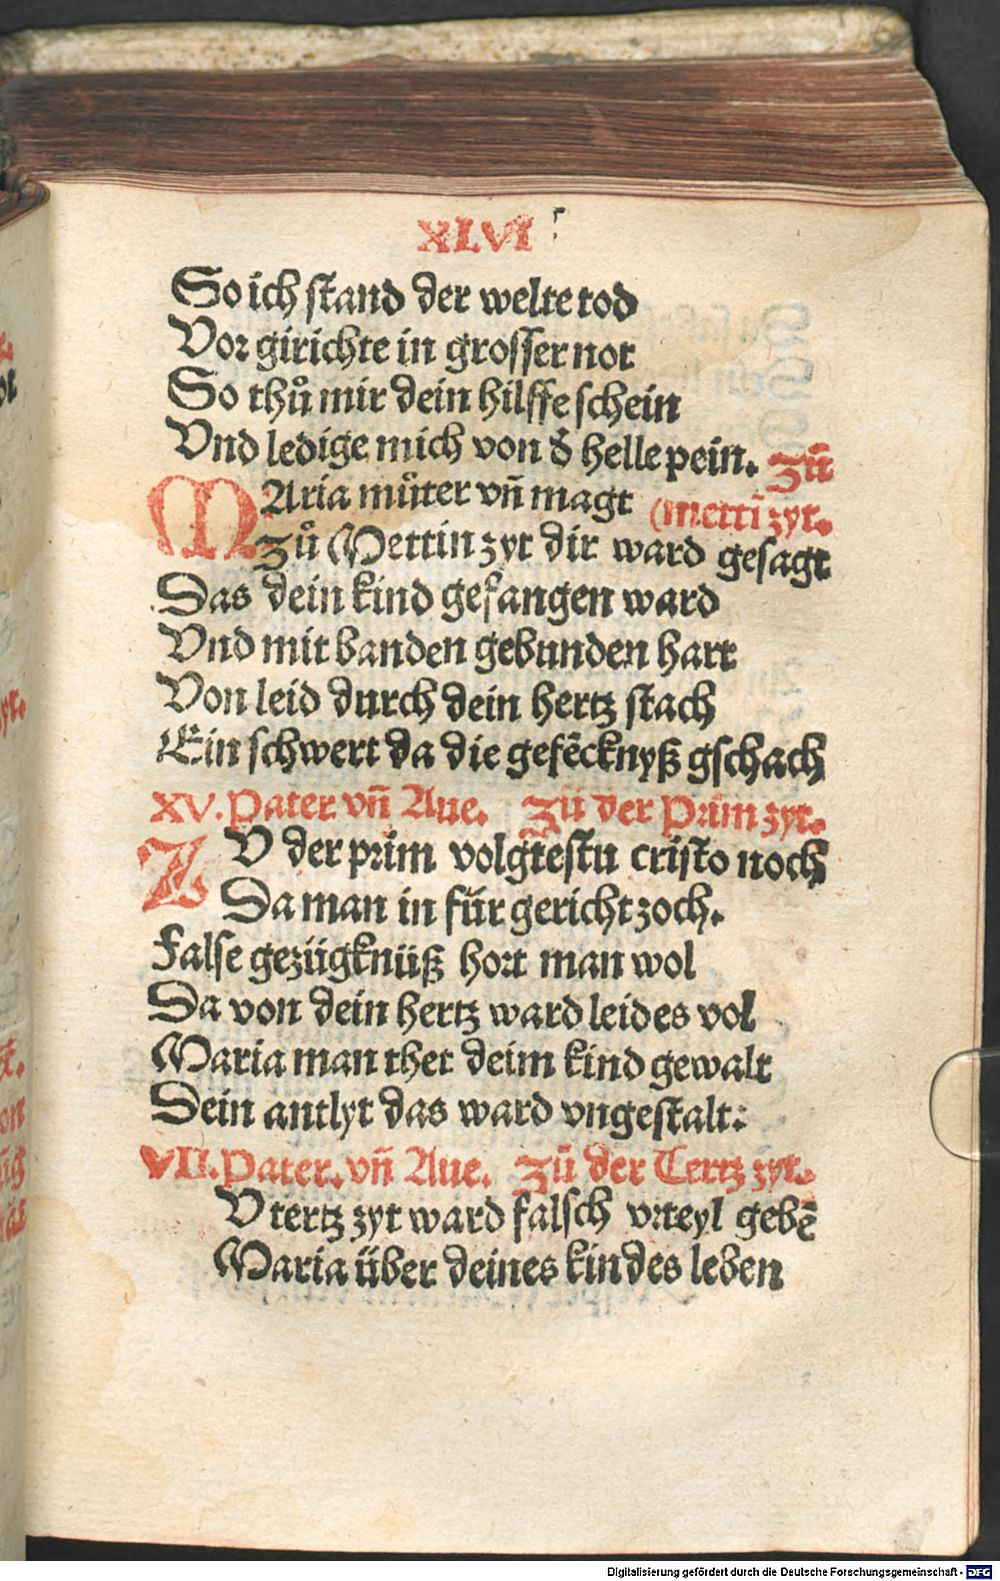 XLVI
So ich stand der welte tod
Vor girichte in grosser not
So thů mir dein hilffe schein
Vnd ledige mich von d̉ helle pein. Zů
MAria můter vn̄ magt (metti zyt.
Zů Mettin zyt dir ward gesagt
Das dein kind gefangen ward
Vnd mit banden gebunden hart
Von leid durch dein hertz stach
Ein schwert da die gefēcknyß gschach
XV. Pater vn̄ Aue. Zů der Prim zyt.
ZV der prim volgtestu cristo noch
Da man in für gericht zoch.
False gezügknüß hort man wol
Da von dein hertz ward leides vol
Maria man thet deim kind gewalt
Dein antlyt das ward vngestalt:
VII. Pater. vn̄ Aue. Zů der Tertz zyt.
V tertz zyt ward falsch vrteyl gebē
Maria über deines kindes leben
Digitalisierung gefördert durch die Deutsche Forschungsgemeinschaft - DFG